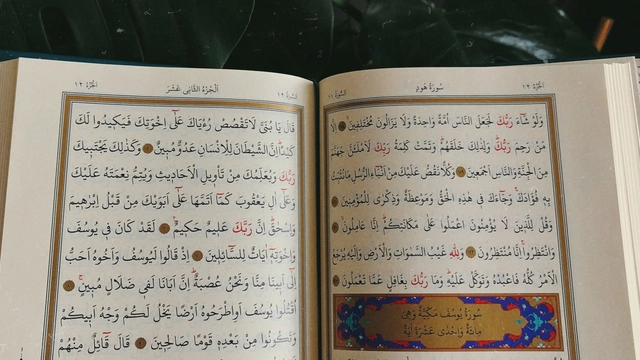 الجزء ١٢
سورة هود
السورة ١١
وَلَوْ شَآءَ رَبُّكَ لَجَعَلَ النَّاسَ اُمَّةً وَاحِدَةً وَلَا يَزَالُونَ مُخْتَلِفِينَ اِلَّا
مَنْ رَحِمَ رَبُّكَ وَلِذٰلِكَ خَلَقَهُمْ وَتَمَّتْ كَلِمَةُ رَبِّكَ لَاَمْلَـَٔنَّ جَهَنَّمَ
مِنَ الْجِنَّةِ وَالنَّاسِ اَجْمَعِينَ وَكُلًّا نَقُصُّ عَلَيْكَ مِنْ اَنْبَآءِ الرُّسُلِ مَا نُثَبِّتُ
بِهِ فُؤَادَكَ وَجَآءَكَ فِي هٰذِهِ الْحَقُّ وَمَوْعِظَةٌ وَذِكْرٰى لِلْمُؤْمِنِينَ
وَقُلْ لِلَّذِينَ لَا يُؤْمِنُونَ اعْمَلُوا عَلٰى مَكَانَتِكُمْ اِنَّا عَامِلُونَ
وَانْتَظِرُوا اِنَّا مُنْتَظِرُونَ وَلِلّٰهِ غَيْبُ السَّمٰوَاتِ وَالْاَرْضِ وَاِلَيْهِ يُرْجَعُ
الْاَمْرُ كُلُّهُ فَاعْبُدْهُ وَتَوَكَّلْ عَلَيْهِ وَمَا رَبُّكَ بِغَافِلٍ عَمَّا تَعْمَلُونَ
سُورَةُ يُوسُفَ مَكِّيَّةٌ وَهِيَ
مِائَةٌ وَاِحْدٰى عَشْرَةَ اٰيَةً
السورة ١٢
اَلْجُزْءُ الثَّانِي عَشَرَ
الجزء ١٢
قَالَ يَا بُنَيَّ لَا تَقْصُصْ رُءْيَاكَ عَلٰٓى اِخْوَتِكَ فَيَكِيدُوا لَكَ
كَيْدًا اِنَّ الشَّيْطَانَ لِلْاِنْسَانِ عَدُوٌّ مُبِينٌ وَكَذٰلِكَ يَجْتَبِيكَ
رَبُّكَ وَيُعَلِّمُكَ مِنْ تَأْوِيلِ الْاَحَادِيثِ وَيُتِمُّ نِعْمَتَهُ عَلَيْكَ
وَعَلٰٓى اٰلِ يَعْقُوبَ كَمَٓا اَتَمَّهَا عَلٰٓى اَبَوَيْكَ مِنْ قَبْلُ اِبْرٰهِيمَ
وَاِسْحٰقَ اِنَّ رَبَّكَ عَلِيمٌ حَكِيمٌ لَقَدْ كَانَ فِي يُوسُفَ
وَاِخْوَتِهِ اٰيَاتٌ لِلسَّٓائِلِينَ اِذْ قَالُوا لَيُوسُفُ وَاَخُوهُ اَحَبُّ
اِلٰٓى اَبِينَا مِنَّا وَنَحْنُ عُصْبَةٌ اِنَّ اَبَانَا لَفِي ضَلَالٍ مُبِينٍ
اُقْتُلُوا يُوسُفَ اَوِ اطْرَحُوهُ اَرْضًا يَخْلُ لَكُمْ وَجْهُ اَبِيكُمْ
وَتَكُونُوا مِنْ بَعْدِهِ قَوْمًا صَالِحِينَ قَالَ قَٓائِلٌ مِنْهُمْ